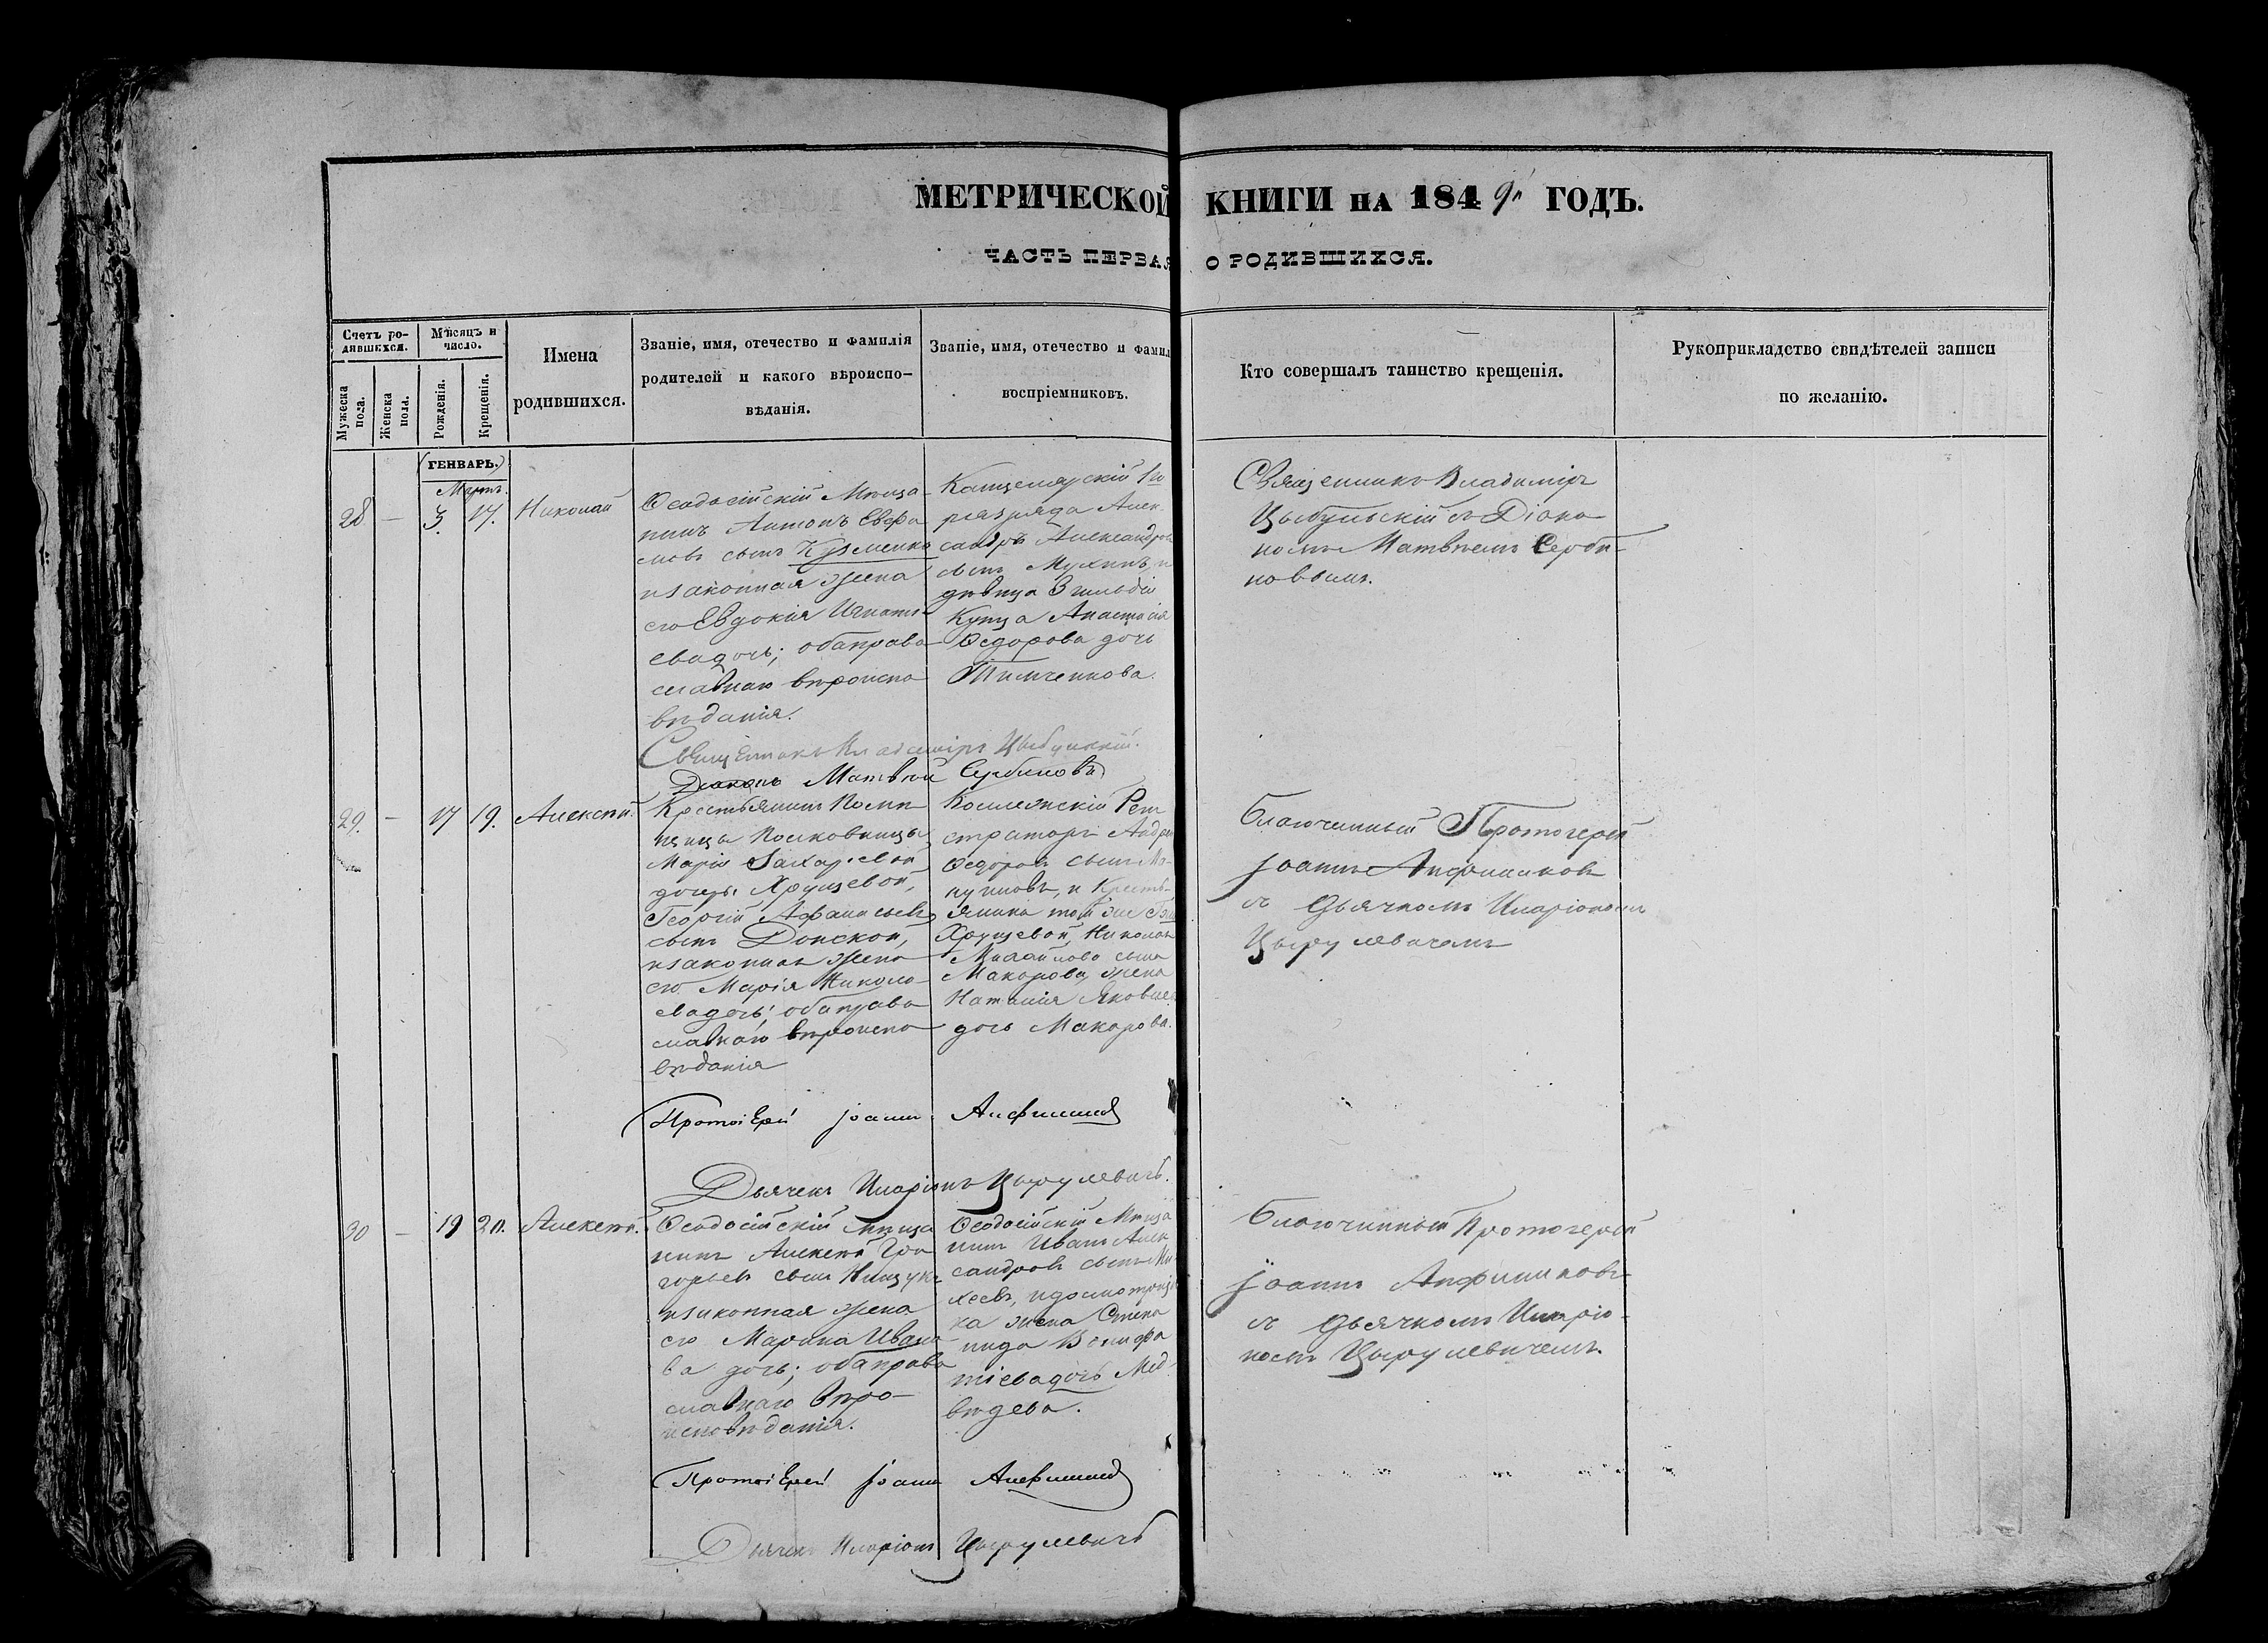 МЕТРИЧЕСКОЙ КНИГИ НА 1849й ГОДЪ.
ЧАСТЬ ПЕРВАЯ О РОДИВШИХСЯ.
Счетъ родившихся.
Мѣсяцъ и число.
Мужеска пола.
Женска пола.
Рожденія.
Крещенія.
Имена
родившихся.
Званіе, имя, отечество и фамилія
родителей и какого вѣроиспо-
вѣданія.
Званіе, имя, отечество и фамил
воспріемниковъ.
Кто совершалъ таинство крещенія.
Рукоприкладство свидѣтелей записи
по желанію.
ГЕНВАРЬ.
Мартъ.
28 — 3. 17. Николай
Ѳеодосійскій Мѣща-
нинъ Антонъ Евфи
мовъ сынъ Кузменко
и законная жена
его Евдокія Игнать
ева дочь; оба право
славнаго вѣроиспо
вѣданія.
Канцелярскій 1го
разряда Алек-
сандръ Александров
сынъ Мухинъ, и
дѣвица 3 гильдіи
Купца Анастасія
Ѳедорова дочь
Тимченкова.
Священникъ Владиміръ
Цыбульскій съ Діако
номъ Матвѣемъ Серби-
новымъ.
Священникъ Владиміръ Цыбульскій.
Діаконъ Матвѣй Сербиновъ
29. — 17 19. Алексѣй.
Крестьянинъ Помѣ
щицы Полковницы
Маріи Захаріевой
дочери Хрущевой,
Георгій Афанасьевъ
сынъ Донской,
и законная жена
его Марія Никола
ева дочь; оба право
славнаго вѣроиспо
вѣданія
Коллежскій Реги
страторъ Андрей
Ѳедоровъ сынъ
и Кресть-
янина той же Г-жи
Хрущевой, Николая
Михайлова сына
Макарова, жена
Наталія Яковлев
дочь Макарова.
Благочинный Протоіерей
Іоаннъ Анфиминовъ
съ Дьячкомъ Иларіономъ
Цырулевичемъ
Протоіерей Іоаннъ Анфиминовъ
Дьячекъ Иларіонъ Цырулевичъ.
30 — 19 20. Алексѣй.
Ѳеодосійскій Мѣща
нинъ Алексѣй Гри
горьевъ сынъ Нищукъ
и законная жена
его Марина Ивано
ва дочь; оба право
славнаго вѣро-
исповѣданія.
Ѳеодосійскій Мѣща
нинъ Иванъ Алек
сандровъ сынъ Ми
хеевъ, и досмотрщи
ка жена Степа
нида Вонифа
тіева дочь Мед-
вѣдева.
Благочинный Протоіерей
Іоаннъ Анфиминовъ
съ Дьячкомъ Иларіо-
номъ Цырулевичемъ.
Протоіерей Іоаннъ Анфиминовъ
Дьячекъ Иларіонъ Цырулевичъ